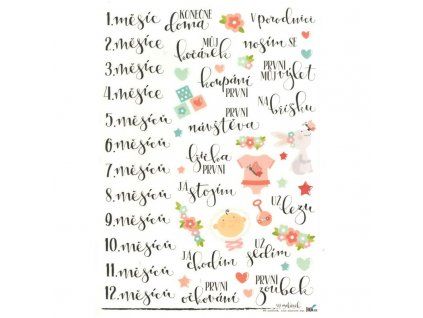 1. měsíc
KONEČNĚ
doma
V porodnici
2. měsíce
MŮJ
kočárek
nosím SE
3. měsíce
PRVNÍ
MŮJ výlet
4. měsíce
koupání
PRVNÍ
NA
bříšku
5. měsíců
PRVNÍ
návštěva
6. měsíců
lžička
PRVNÍ
7. měsíců
8. měsíců
JÁ
stojím
UŽ
lezu
9. měsíců
10. měsíců
JÁ
chodím
UŽ
sedím
11. měsíců
12. měsíců
PRVNÍ
očkování
PRVNÍ
zoubek